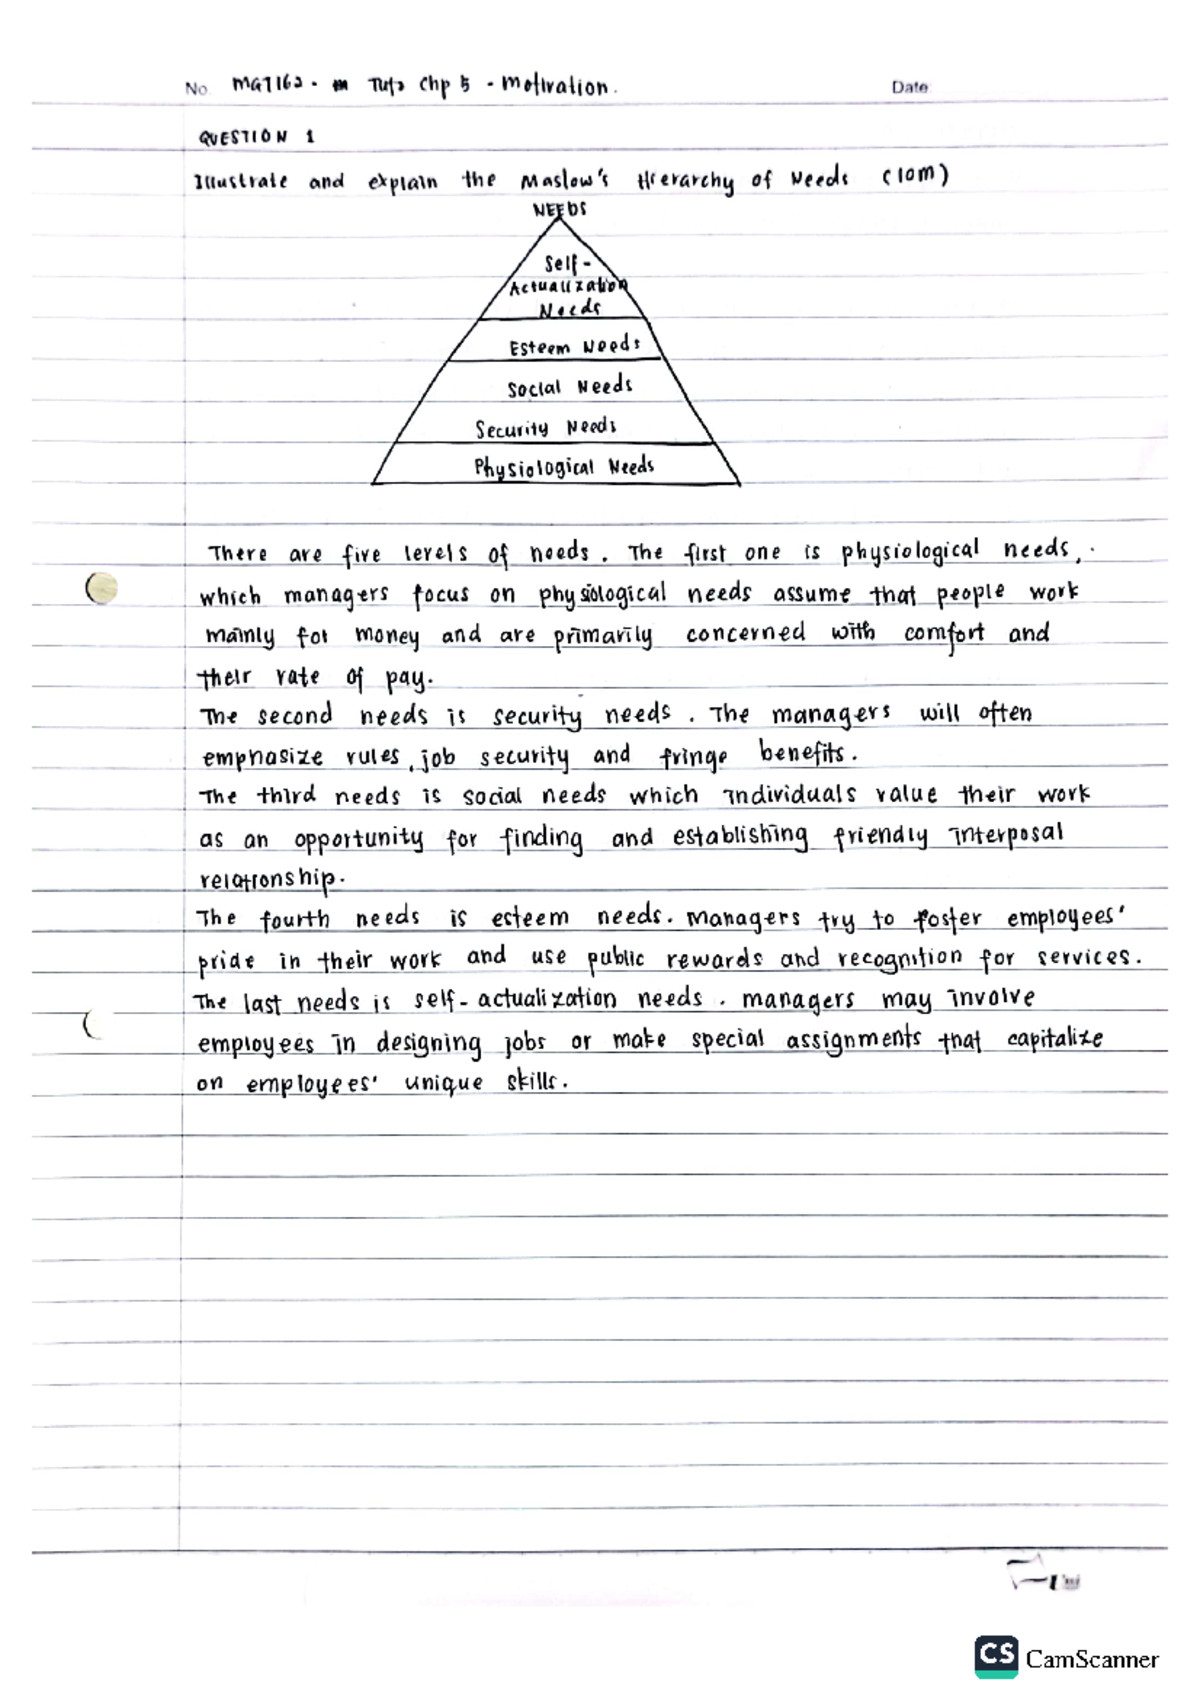 No. MGT162 - Tuto Chp 5 - Motivation. Date
QUESTION 1
Illustrate and explain the Maslow's Hierarchy of Needs (10m)
NEEDS
Self-
Actualization
Needs
Esteem Needs
Social Needs
Security Needs
Physiological Needs
There are five levels of needs. The first one is physiological needs,
which managers focus on physiological needs assume that people work
mainly for money and are primarily concerned with comfort and
their rate of pay.
The second needs is security needs. The managers will often
emphasize rules, job security and fringe benefits.
The third needs is social needs which individuals value their work
as an opportunity for finding and establishing friendly interposal
relationship.
The fourth needs is esteem needs. Managers try to foster employees'
pride in their work and use public rewards and recognition for services.
The last needs is self-actualization needs. Managers may involve
employees in designing jobs or make special assignments that capitalize
on employees' unique skills.
CS CamScanner